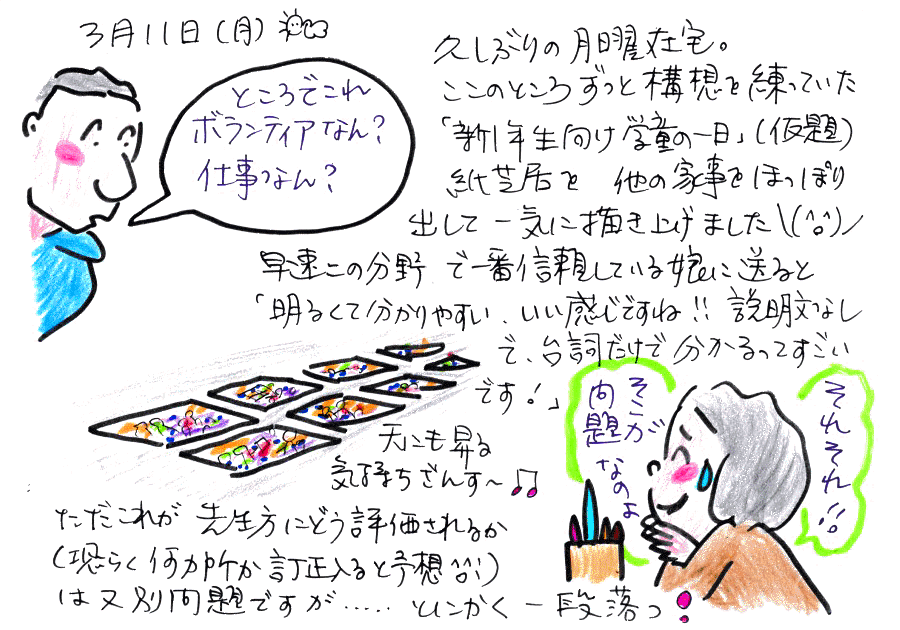 3月11日(月)
久しぶりの月曜在宅。
ここのところずっと構想を練っていた
「新1年生向け学童の一日」(仮題)
紙芝居を 他の家事をほっぽり
出して一気に描き上げました\(^o^)/
早速この分野で一番信頼している娘に送ると
「明るくて分かりやすい、いい感じですね!!説明文なし
で、台詞だけで分かるってすごい
です!」
天にも昇る
気持ちざんす〜♫
ただこれが 先生方にどう評価されるか
(恐らく何カ所か訂正入ると予想^^;)
は又別問題ですが…… とにかく一段落っ!
ところでこれ
ボランティアなん?
仕事なん?
それそれ!!
そこが
問題
なのよ